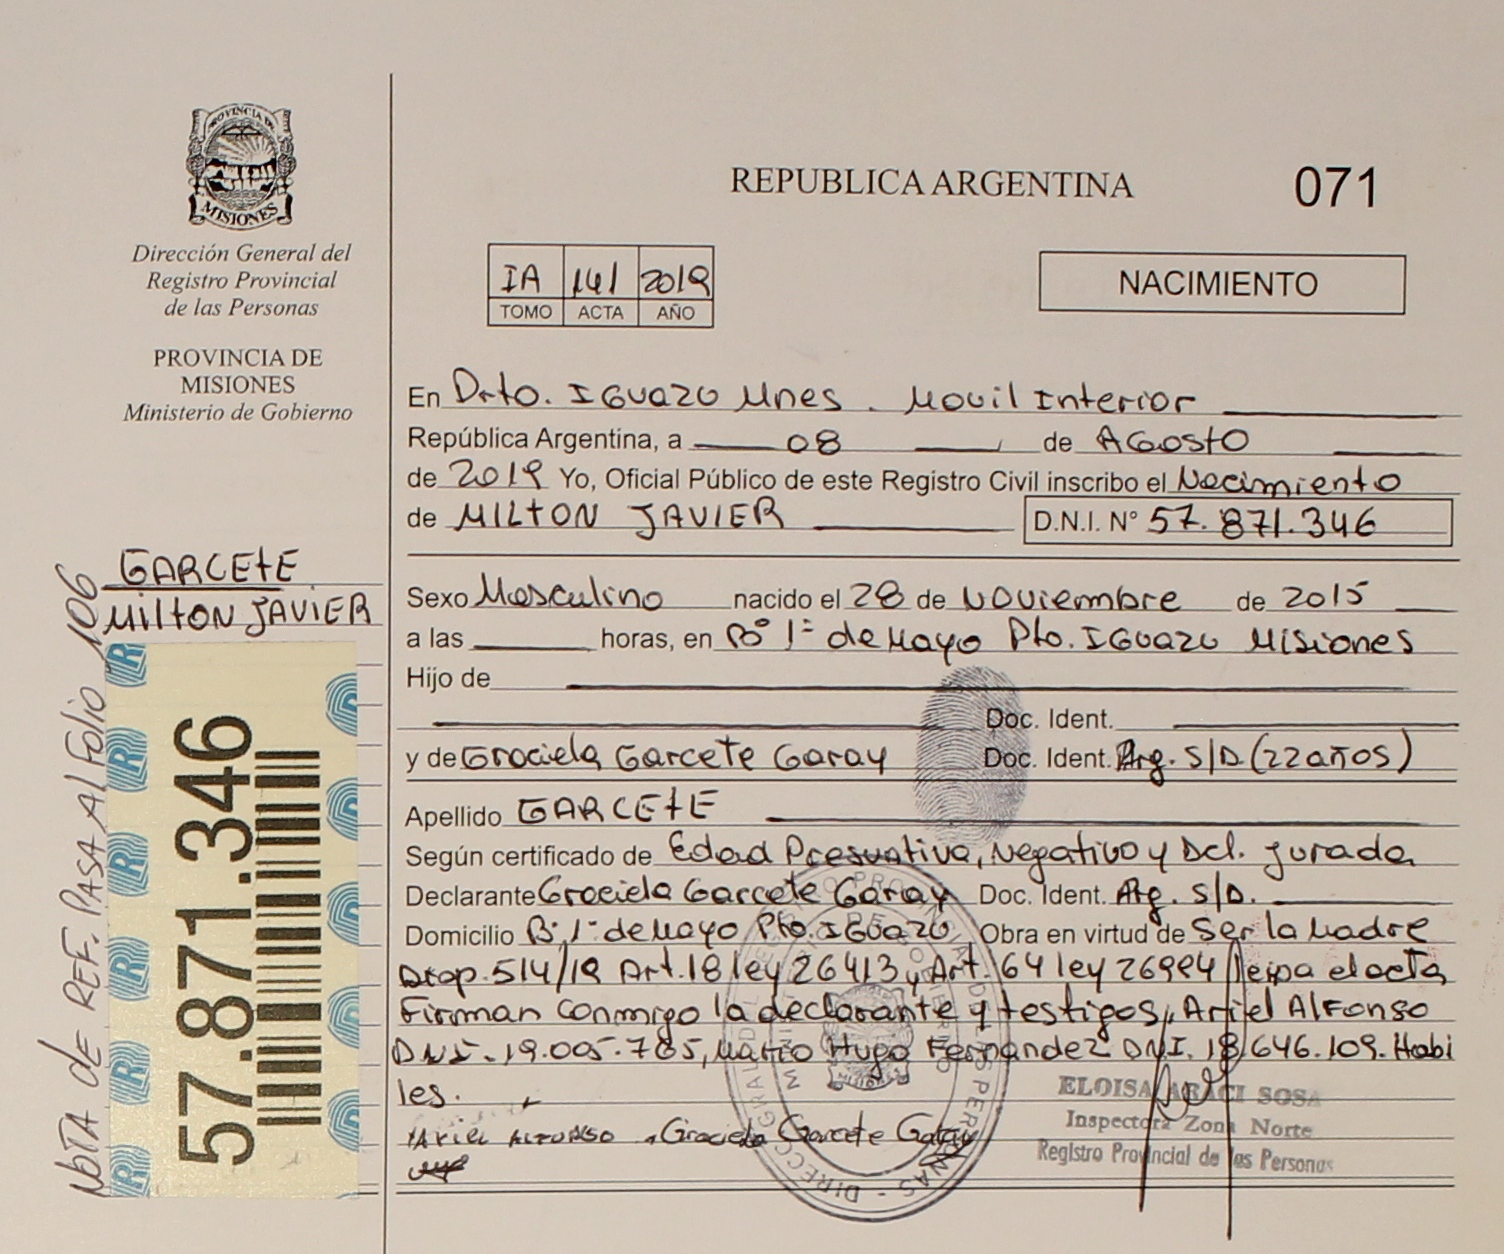 PROVINCIA DE
MISIONES
Dirección General del
Registro Provincial
de las Personas
PROVINCIA DE
MISIONES
Ministerio de Gobierno
REPUBLICA ARGENTINA
071
IA 141 2019
TOMO ACTA AÑO
NACIMIENTO
En Dto. IGUAZU Mnes. Movil Interior
República Argentina, a 08 de AGOSTO
de 2019 Yo, Oficial Público de este Registro Civil inscribo el Nacimiento
de MILTON JAVIER D.N.I. N° 57.871.346
GARCETE
MILTON JAVIER
NOTA DE REF. PASA AL FOLIO 106
57.871.346
Sexo Masculino nacido el 28 de NOViembre de 2015
a las horas, en B° 1° de Mayo Pto. IGUAZU Misiones
Hijo de
Doc. Ident.
y de Graciela Garcete Garay Doc. Ident. Arg. S/D (22 años)
Apellido GARCETE
Según certificado de Edad Presuntiva, Negativo y Dcl. Jurada
Declarante Graciela Garcete Garay Doc. Ident. Arg. S/D.
Domicilio B° 1° de Mayo Pto. IGUAZU Obra en virtud de Ser la Madre
Disp. 514/19 Art. 18 ley 26413 y Art. 64 ley 26994 el acta
Firman conmigo la declarante y testigos, Ariel Alfonso
DNI. 19.005.765, Mario Hugo Fernandez DNI. 18.646.109. Habi
les.
ALFONSO Graciela Garcete Garay
ELOISA ARACI SOSA
Inspectora Zona Norte
Registro Provincial de las Personas